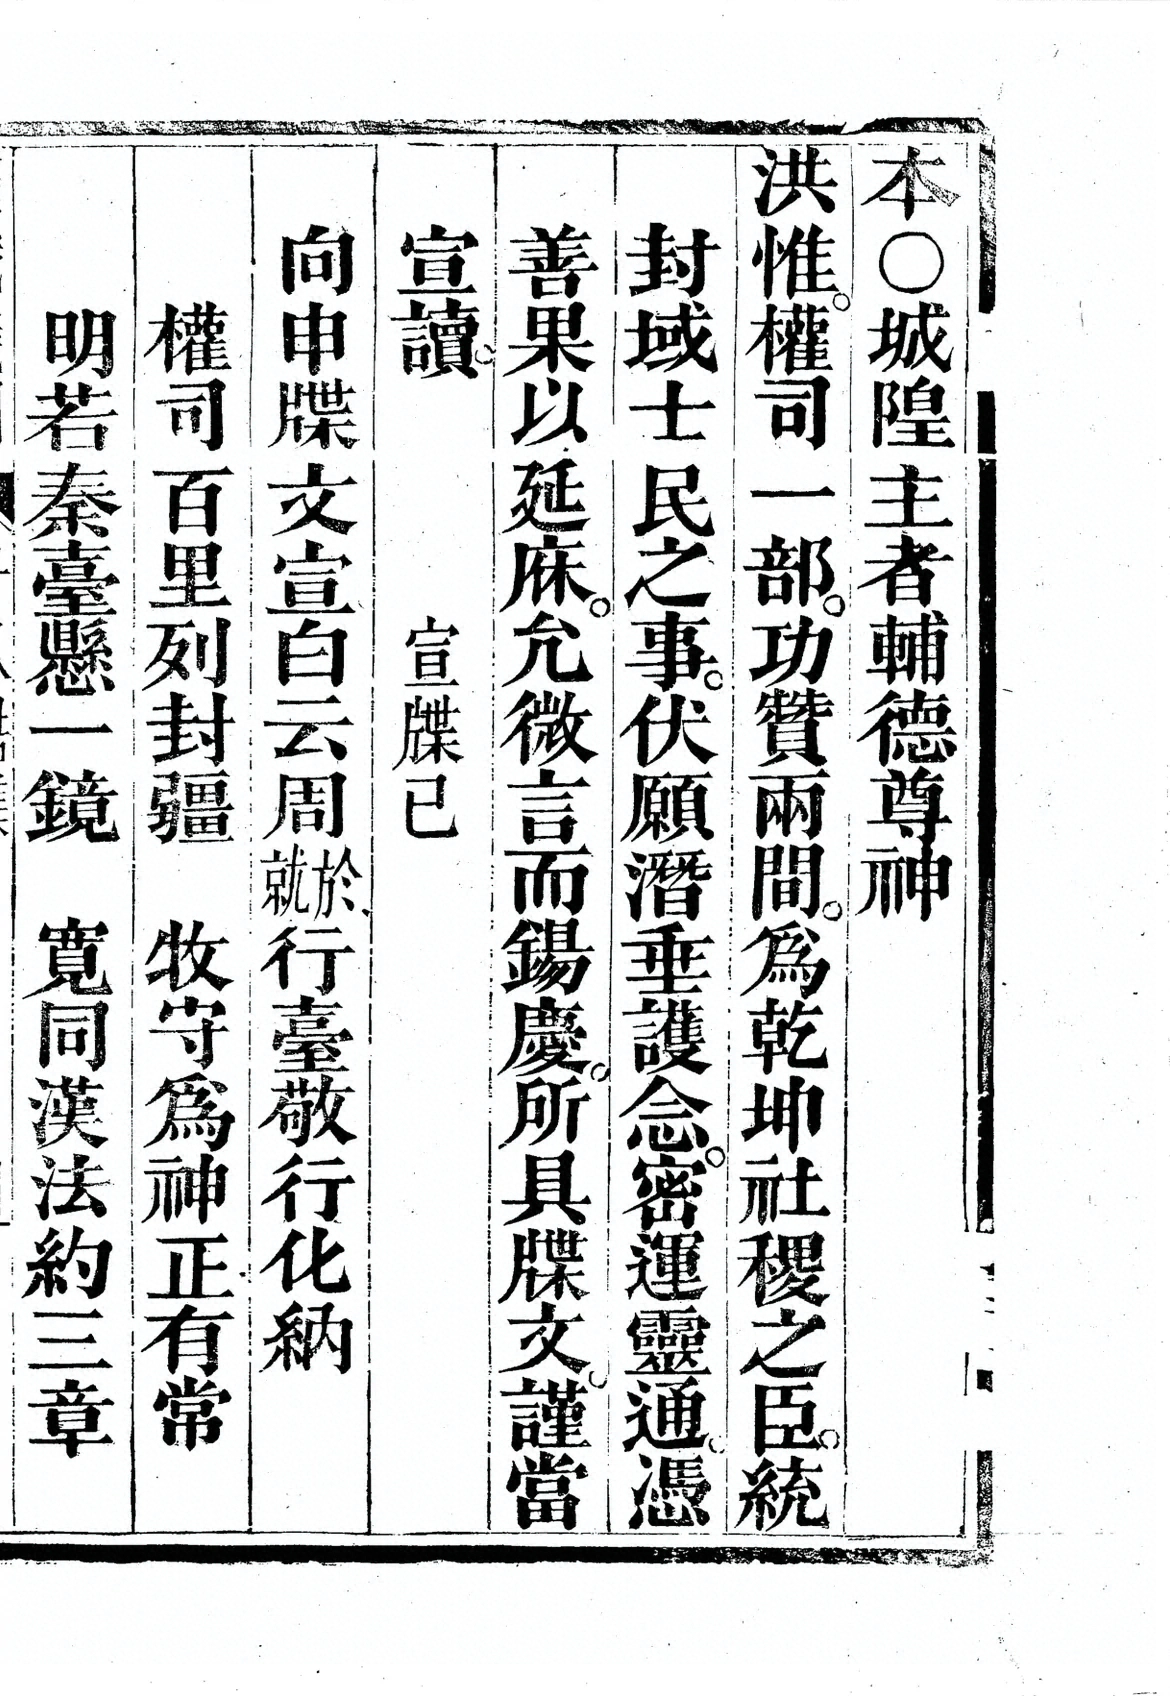 本○城隍主者輔德尊神
洪惟。權司一部。功贊兩間。爲乾坤社稷之臣。統
封域士民之事。伏願潛垂護念。密運靈通。憑
善果以延庥。允微言而錫慶。所具牒文。謹當
宣讀。　宣牒已
向申牒文宣白云周於就行臺敬行化納
權司百里列封疆　牧守爲神正有常
明若秦臺懸一鏡　寬同漢法約三章